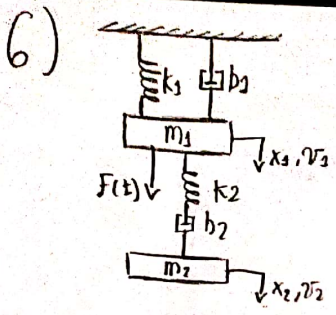 6)
k1 b1
m1
x1, v1
F(t) k2
b2
m2
x2, v2